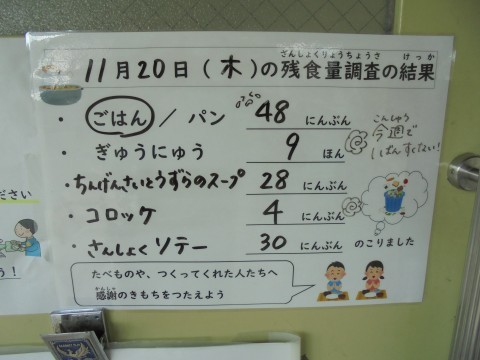 ざんしょくりょうちょうさ けっか
11月20日(木)の残食量調査の結果
・ごはん/パン 48 にんぶん
・ぎゅうにゅう 9 ほん
・ちんげんさいとうずらのスープ 28 にんぶん
・コロッケ 4 にんぶん
・さんしょくソテー 30 にんぶん のこりました
こんしゅう
今週で
いちばんすくない!
たべものや、つくってくれた人たちへ
かんしゃ
感謝のきもちをつたえよう
ださい
う!